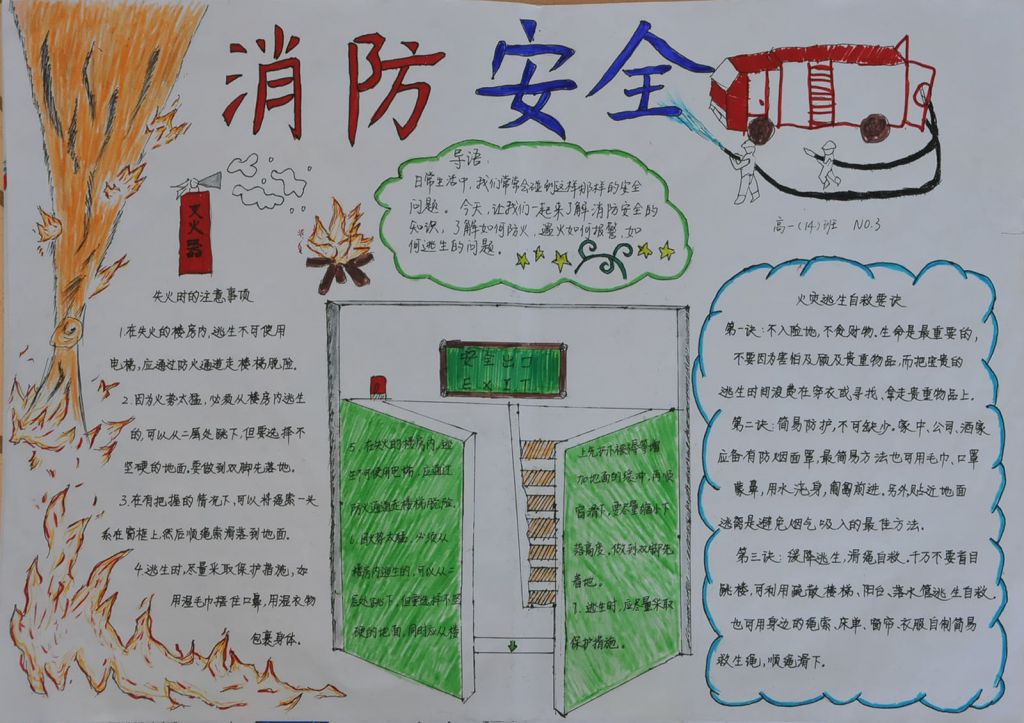 消防安全
导语:
日常生活中,我们常常会碰到这样那样的安全
问题。今天,让我们一起来了解消防安全的
知识,了解如何防火,遇火如何报警,如
何逃生的问题。
高一(14)班 NO.3
灭火器
失火时的注意事项
1.在失火的楼房内,逃生不可使用
电梯,应通过防火通道走楼梯脱险。
2.因为火势太猛,必须从楼房内逃生
的,可以从二层处跳下,但要选择不
坚硬的地面,要做到双脚先落地。
3.在有把握的情况下,可以将绳索一头
系在窗框上,然后顺绳索滑落到地面。
4.逃生时,尽量采取保护措施,如
用湿毛巾捂住口鼻,用湿衣物
包裹身体。
安全出口
EXIT
5.在失火的楼房内,逃
生不可使用电梯,应通过
防火通道走楼梯脱险。
火势太猛,必须从
楼房内逃生的,可以从二
层处跳下,但要选择不坚
硬的地面,同时应从楼
上先扔下被褥等增
加地面的缓冲,再顺
窗滑下,要尽量缩小下
落高度,做到双脚先
着地。
7.逃生时,应尽量采取
保护措施。
火灾逃生自救要诀
第一诀:不入险地,不贪财物.生命是最重要的,
不要因为害怕及顾及贵重物品,而把宝贵的
逃生时间浪费在穿衣或寻找、拿走贵重物品上。
第二诀:简易防护,不可缺少。家中、公司、酒家
应备有防烟面罩,最简易方法也可用毛巾、口罩
蒙鼻,用水浇身,匍匐前进,另外贴近地面
逃离是避免烟气吸入的最佳方法。
第三诀:缓降逃生,滑绳自救.千万不要盲目
跳楼,可利用疏散楼梯、阳台、落水管逃生自救.
也可用身边的绳索、床单、窗帘、衣服自制简易
救生绳,顺绳滑下。